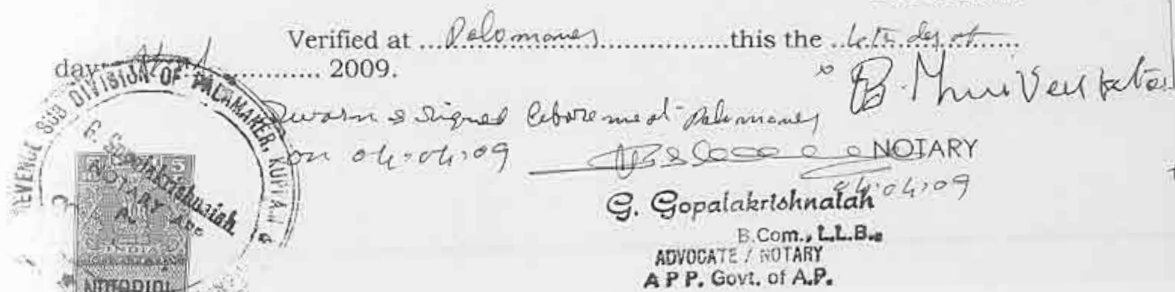 Verified at ...Palamaner...this the ...4th day of...
day April ............ 2009.
B. Muni Venkata
Sworn & Signed before me at Palamaner
on 04:04:09 NOTARY
04:04:09
G. Gopalakrishnaiah
B.Com., L.L.B.,
ADVOCATE / NOTARY
A P P. Govt. of A.P.
REVENUE SUB DIVISION OF PALAMANER, KUPPAM &
G. Gopalakrishnaiah
NOTARY
INDIA
NOTARIAL